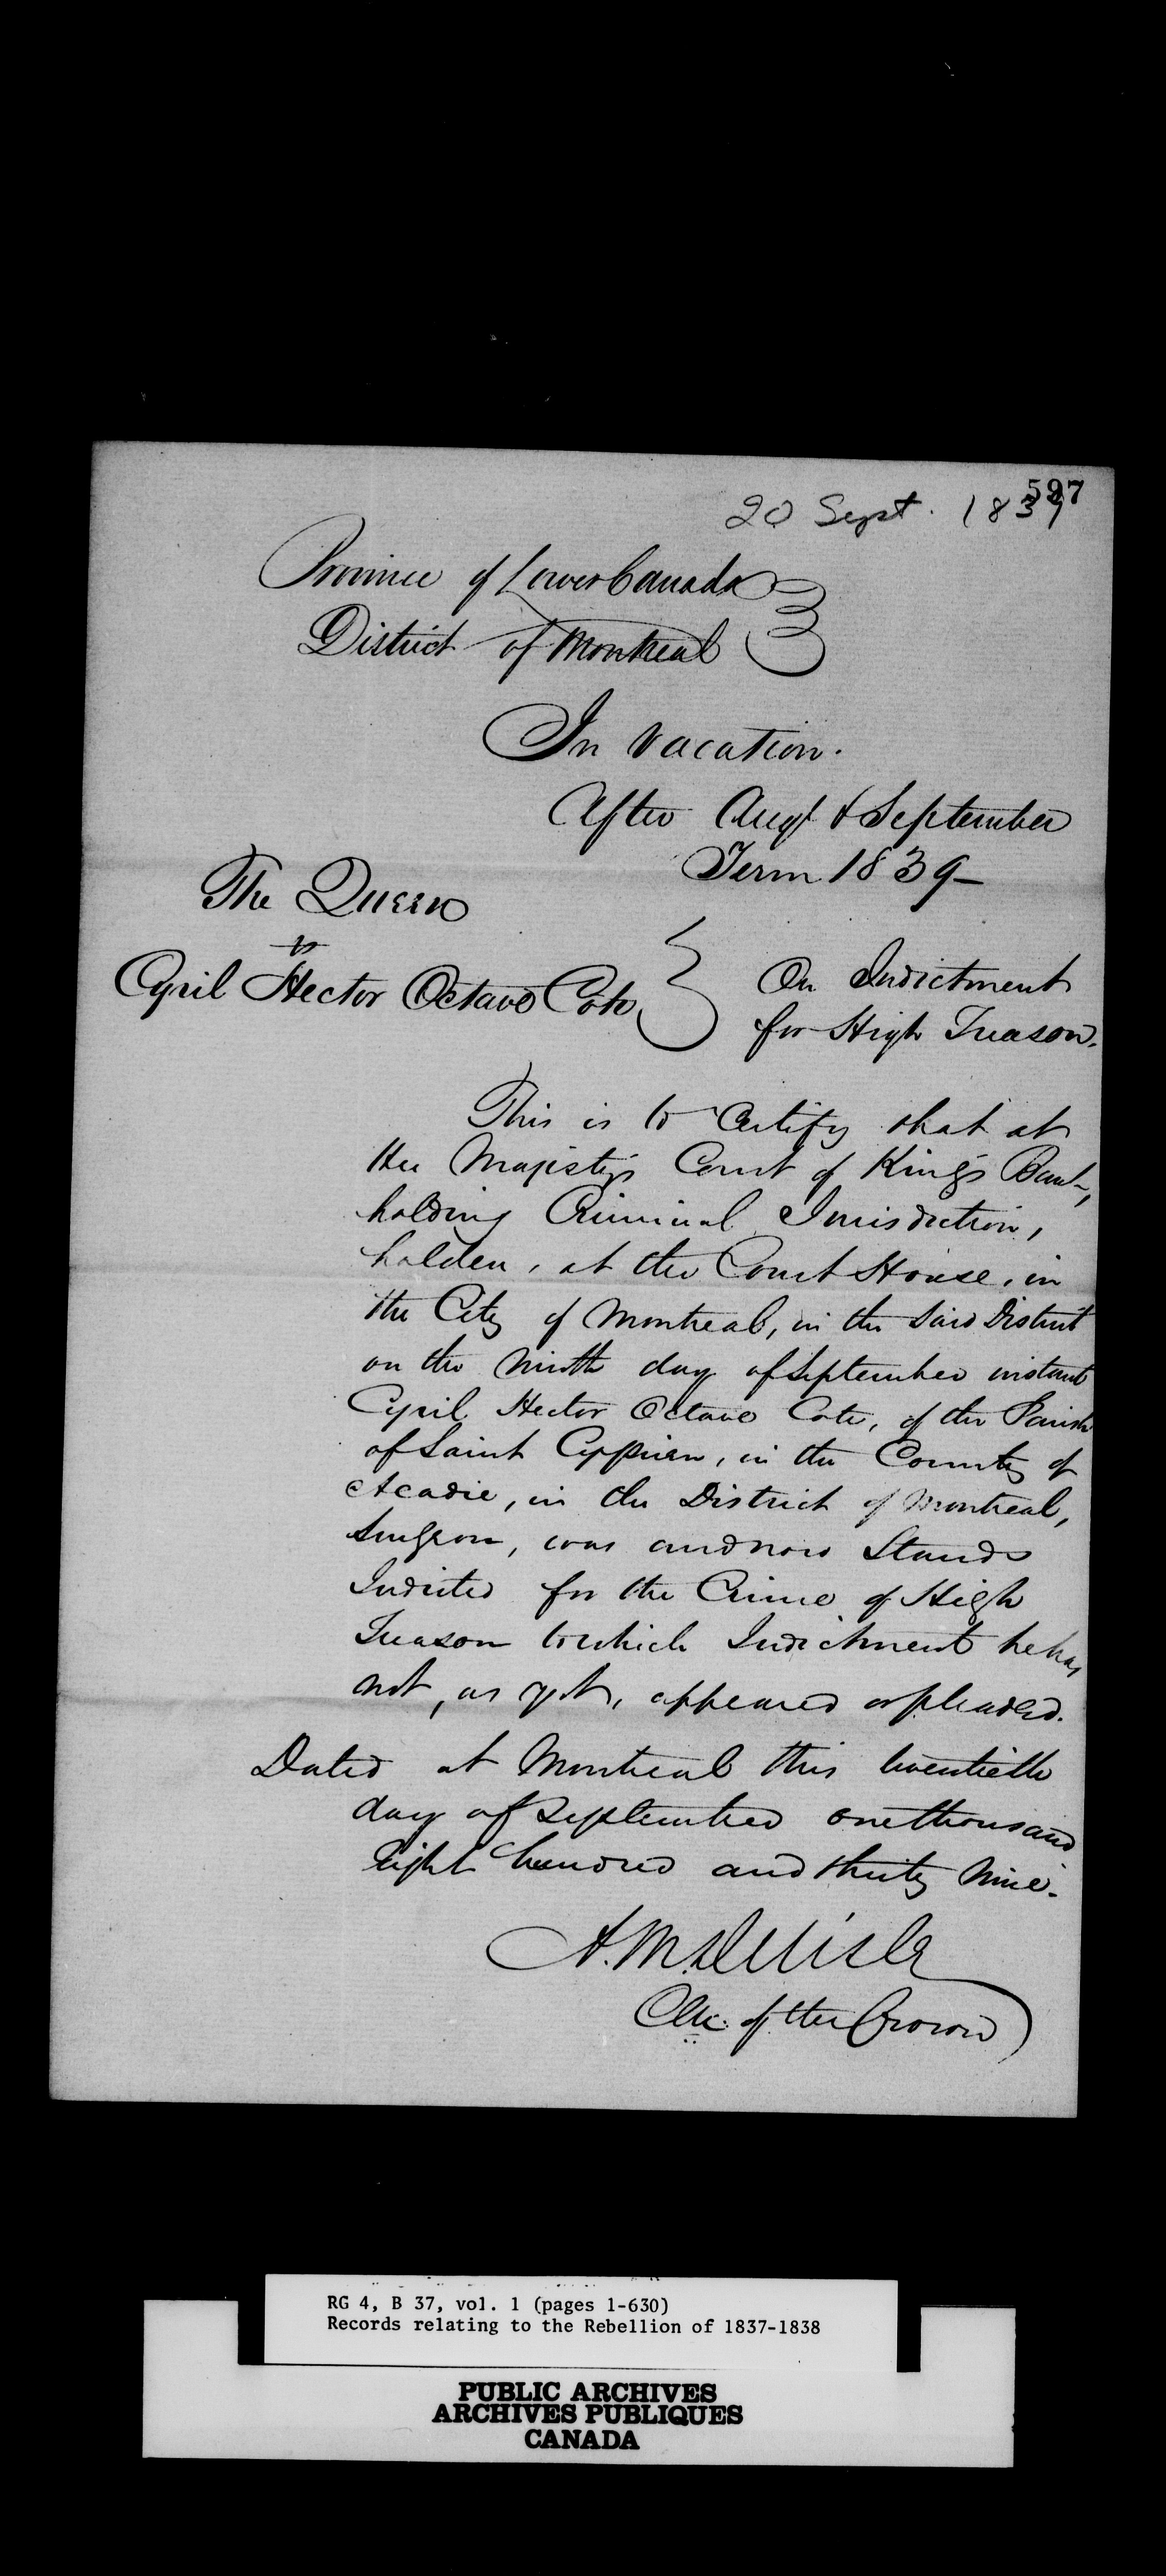 597
20 Sept. 1839
Province of Lower Canada
District of Montreal
In Vacation.
After Augt & September
Term 1839-
The Queen
vs
Cyril Hector Octave Cote
On Indictment
for High Treason.
This is to Certify that at
Her Majesty's Court of King's Bench,
holding Criminal Jurisdiction,
holden, at the Court House, in
the City of Montreal, in the said District
on the Ninth day of September instant
Cyril Hector Octave Cote, of the Parish
of Saint Cyprien, in the County of
Acadie, in the District of Montreal,
Surgeon, was and now Stands
Indicted for the Crime of High
Treason to which Indictment he has
not, as yet, appeared or pleaded.
Dated at Montreal this twentieth
day of September one thousand
Eight hundred and thirty Nine.
A. M. Delisle
Clk. of the Crown
RG 4, B 37, vol. 1 (pages 1-630)
Records relating to the Rebellion of 1837-1838
PUBLIC ARCHIVES
ARCHIVES PUBLIQUES
CANADA